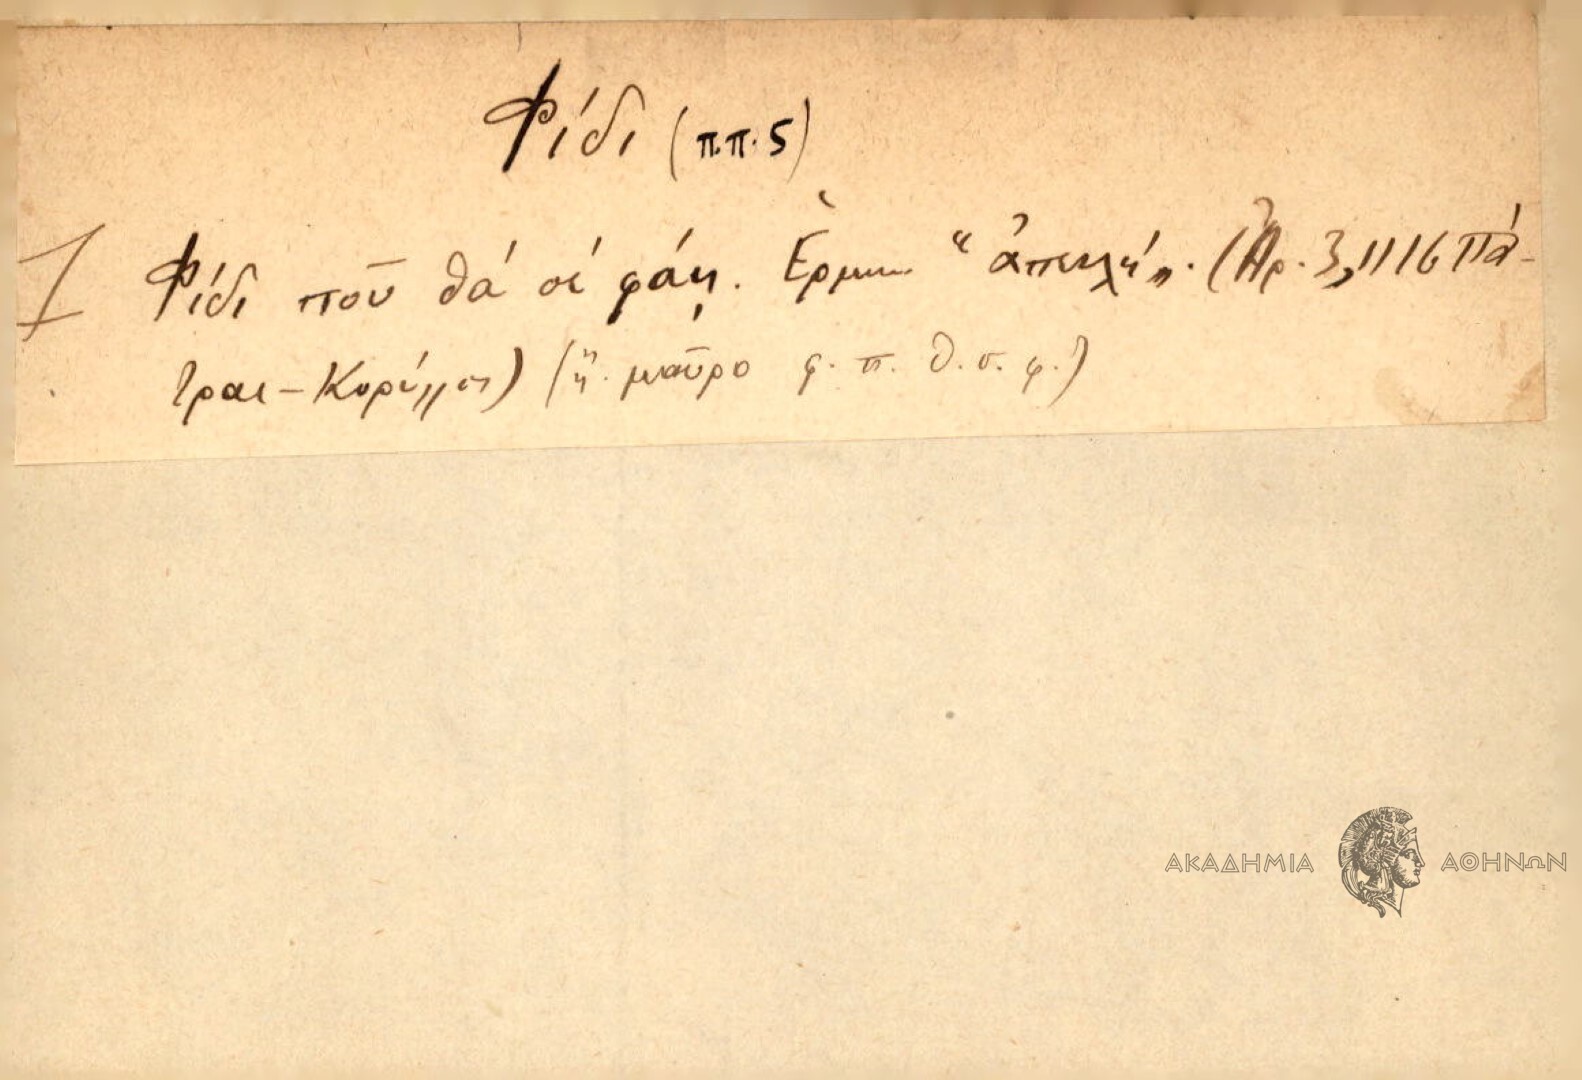 Φίδι (π.π. 5)
1 Φίδι ποῦ θά σέ φάῃ. Ἑρμ. "ἀπειλή". (Ἀρ. 3,1116 Πά-
τραι - Κορύλλος) (ἤ. μαῦρο φ. π. θ. σ. φ.)
ΑΚΑΔΗΜΙΑ ΑΘΗΝΩΝ